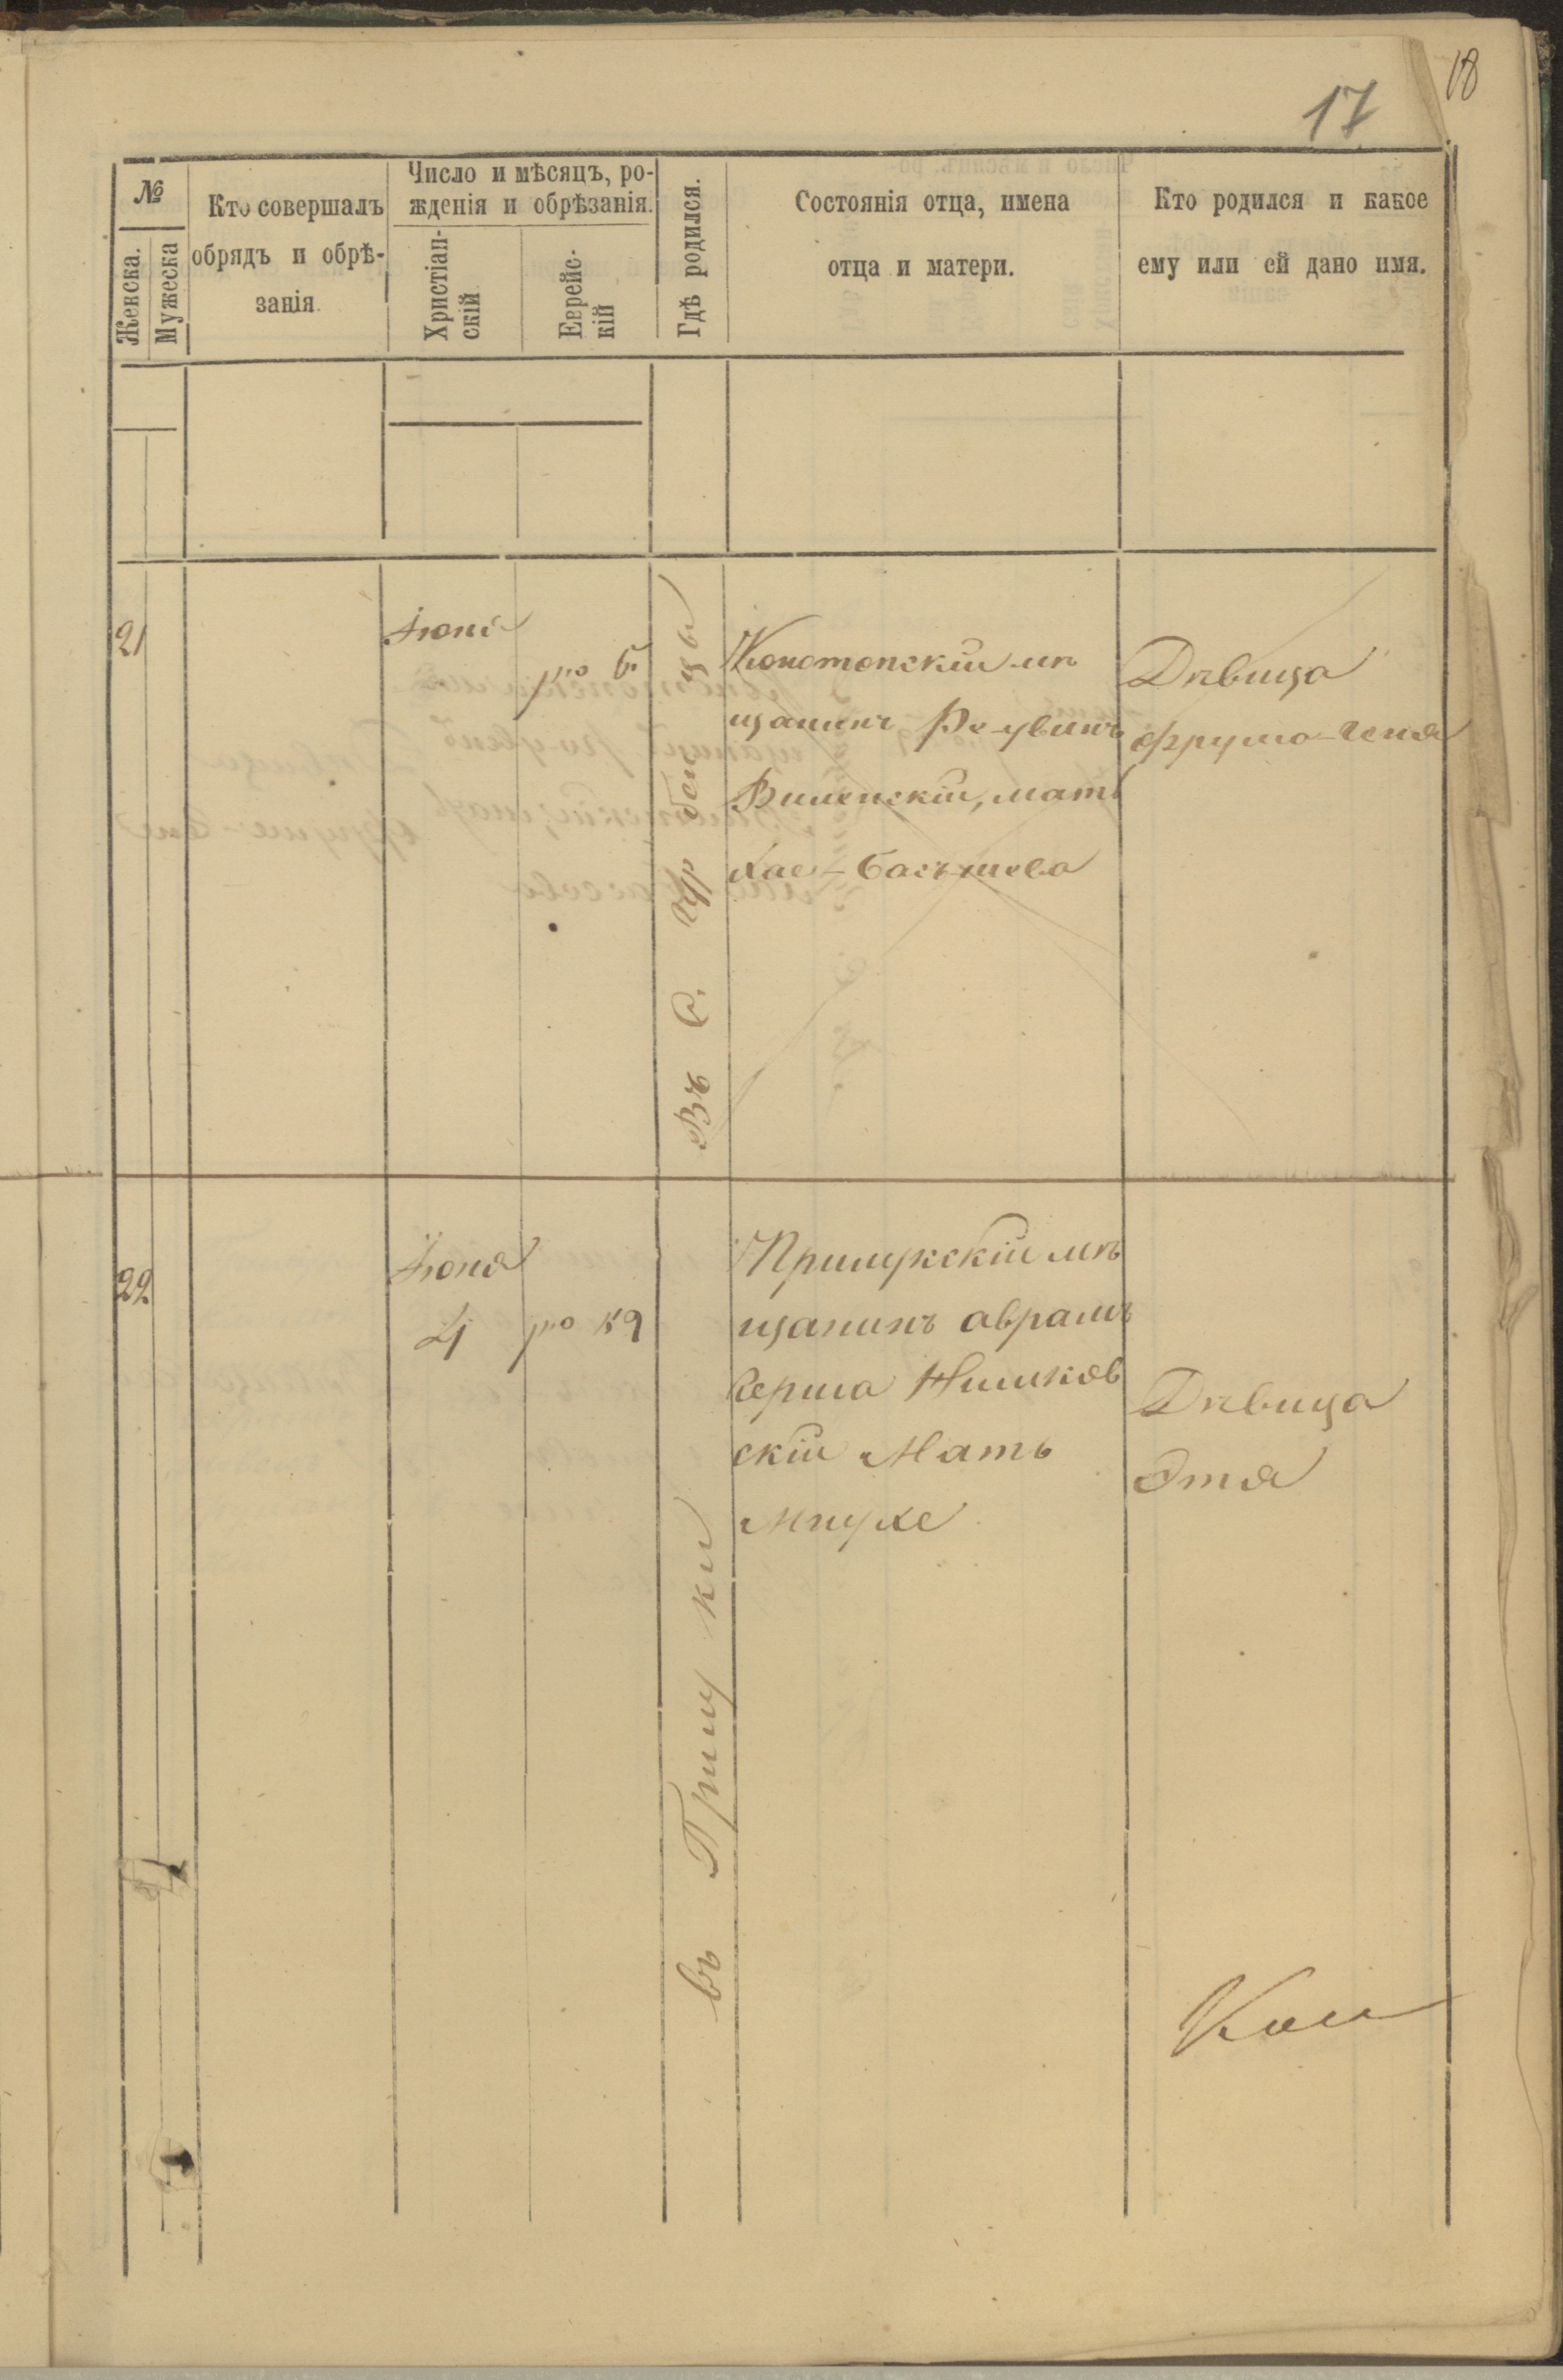 18
17
№
Женска.
Мужеска
Кто совершалъ
обрядъ и обрѣ-
занія
Число и мѣсяцъ, ро-
жденія и обрѣзанія.
Христіан-
скій
Еврейс-
кій
Гдѣ родился.
Состоянія отца, имена
отца и матери.
Кто родился и какое
ему или ей дано имя.
21
Іюня
Въ С.
Конотопскій мѣ
щанинъ Ре-увинъ
Виленскій, мать
Хае-Басъ-шева
Дѣвица
Фрума-Геня
22
Іюня
4
въ Прилуки
Прилукскій мѣ
щанинъ аврамъ
Герша
скій Мать
Мнухе
Дѣвица
Этя